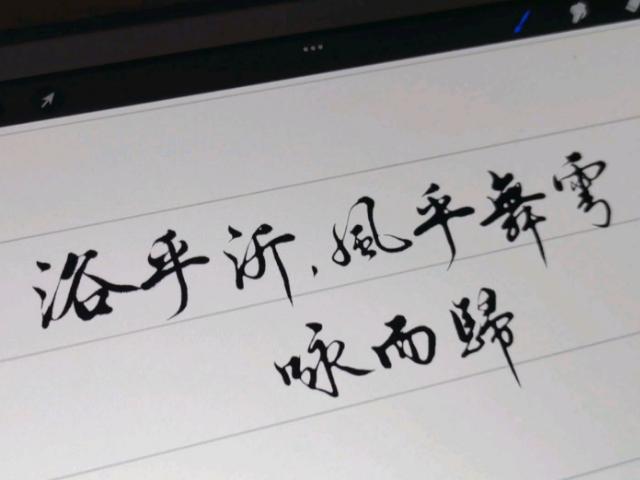 浴乎沂,風乎舞雩
咏而歸